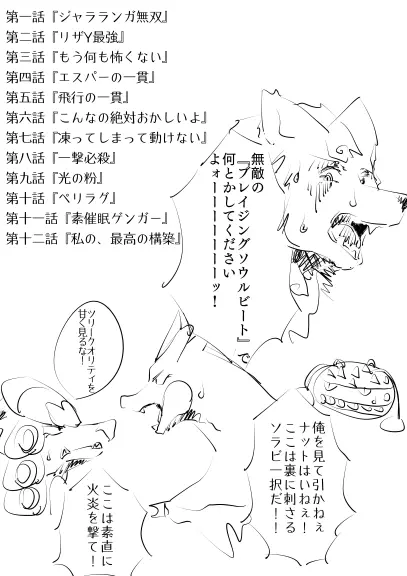 第一話『ジャラランガ無双』
第二話『リザY最強』
第三話『もう何も怖くない』
第四話『エスパーの一貫』
第五話『飛行の一貫』
第六話『こんなの絶対おかしいよ』
第七話『凍ってしまって動けない』
第八話『一撃必殺』
第九話『光の粉』
第十話『ペリラグ』
第十一話『素催眠ゲンガー』
第十二話『私の、最高の構築』
無敵の
『ブレイジングソウルビート』で
何とかしてください
よォーーーーーーーッ！
ツリークオリティを
甘く見るな！
俺を見て引かねぇ
ナットはいねぇ！
ここは裏に刺さる
ソラビ一択だ！！
ここは素直に
火炎を撃て！